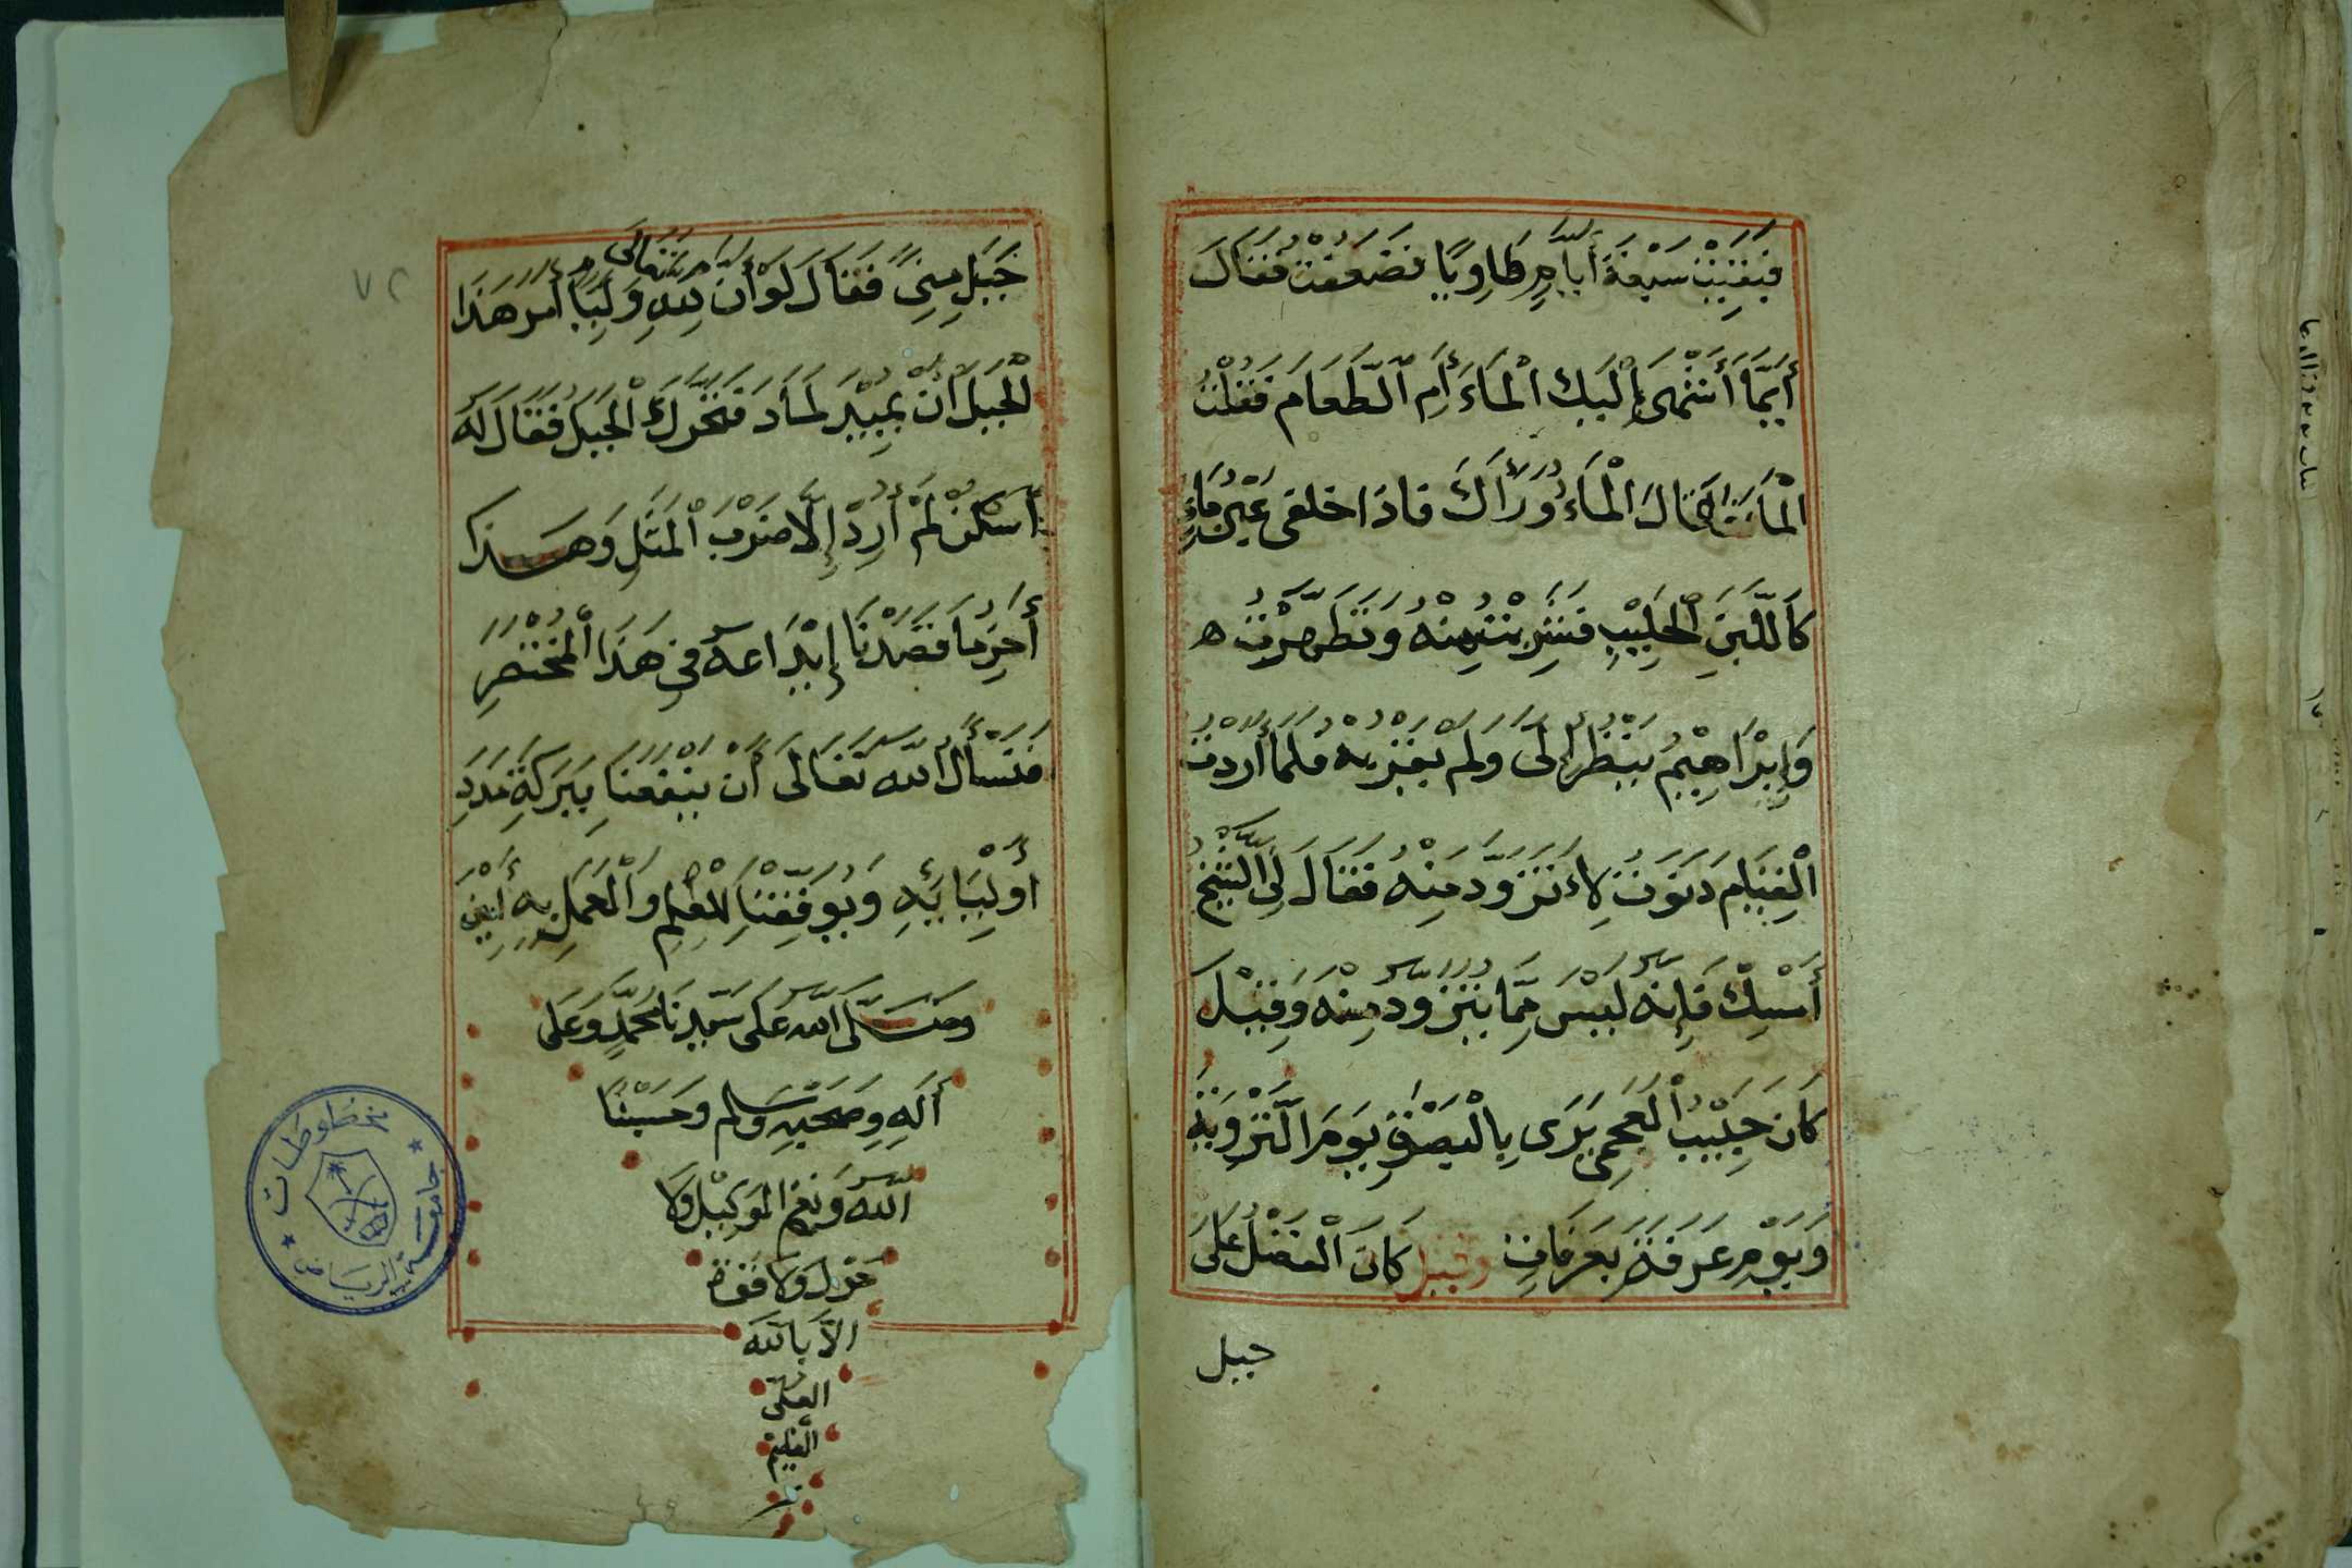 فبقيت سبعة أيام طاويا فضعفت فقال
أيما أشهى إليك الماء أم الطعام فقلت
الماء فقال الماء وراءك فاذا خلفى عين ماء
كاللبن الحليب فشربت منه وتطهرت ه
وإبراهيم ينظر إلى ولم يقربه فلما أردت
القيام دنوت لاءتزود منه فقال لى الشيخ
أمسك فإنه ليس مما يتزود منه وقيل
كان حبيب العجمى يرى بالبصرة يوم التروية
ويوم عرفة بعرفات وقيل كان الفضل على
جبل
جبل منى فقال لو أن لله تعالى وليا أمر هذا
الجبل أن يميد لماد فتحرك الجبل فقال له
أسكن لم أرد إلا ضرب المثل وهذا
أخر ما قصدنا إيداعه في هذا المختصر
فنسأل الله تعالى أن ينفعنا ببركة مدد
أوليائه ويوفقنا للعلم والعمل به أمين
وصلى الله على سيدنا محمد وعلى
أله وصحبه وسلم وحسبنا
الله ونعم الوكيل ولا
حول ولا قوة
الا بالله
العلى
العظيم
٧٢
مخطوطات
جامعة الرياض